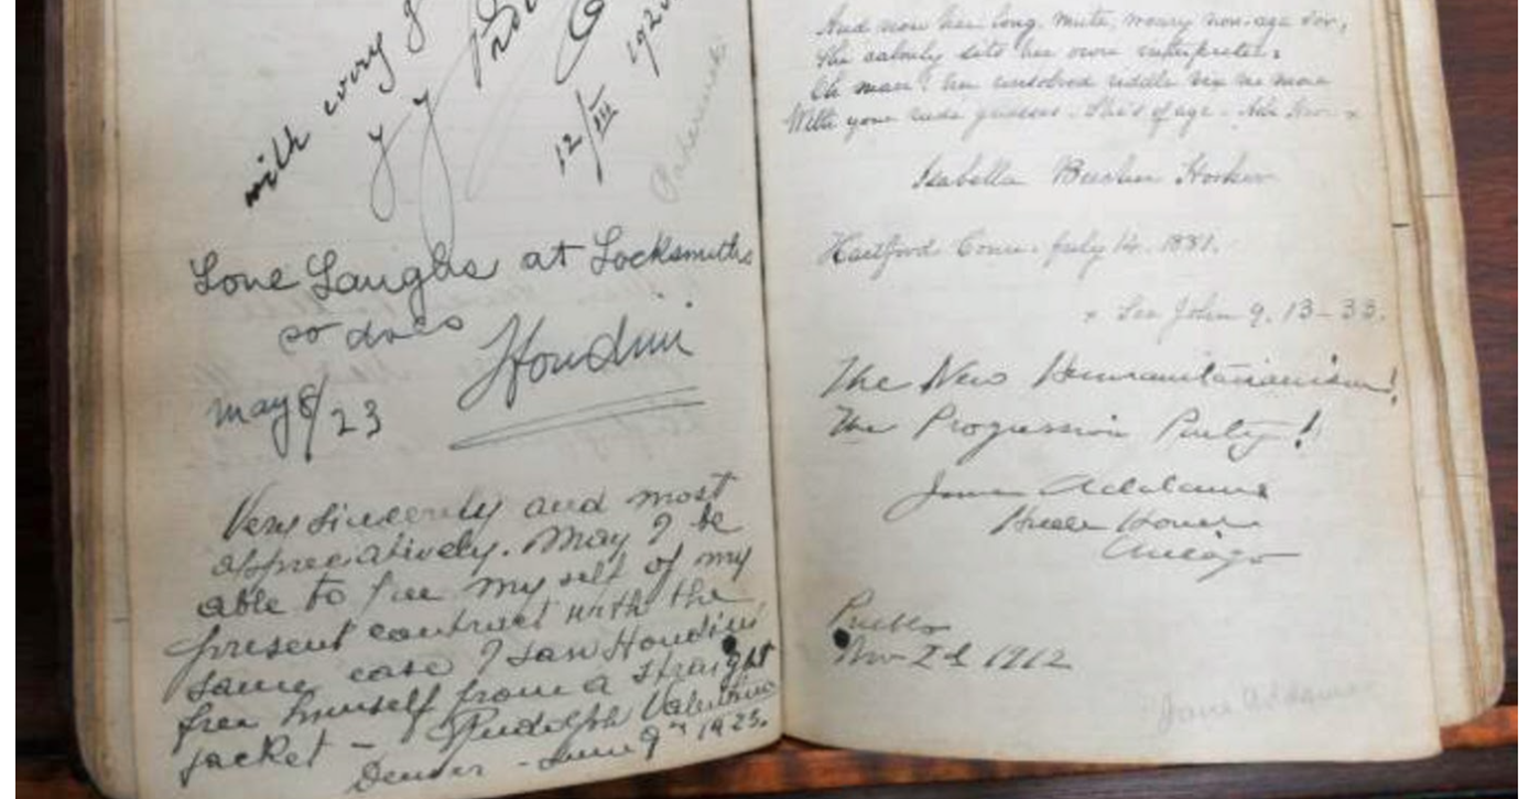 with every g
I J Pade
12/III 192
Paderewski
Love Laughs at Locksmiths
so does Houdini
may 8/23
Very sincerely and most
appreciatively. May I be
able to free my self of my
present contract with the
same ease I saw Houdini
free himself from a straight
jacket – Rudolph Valentino
Denver – June 9th 1923.
And now her long, mute, weary non-age o'er,
She calmly sits her own interpreter;
Oh man! her unsolved riddle vex no more
With your rude guesses. She's of age. Ask her. x
Isabella Beecher Hooker
Hartford Conn. July 14. 1881.
x See John 9. 13-33.
The New Humanitarianism!
The Progressive Party!
Jane Addams
Hull House
Chicago
Pueblo
Nov 2d 1912
Jane Addams